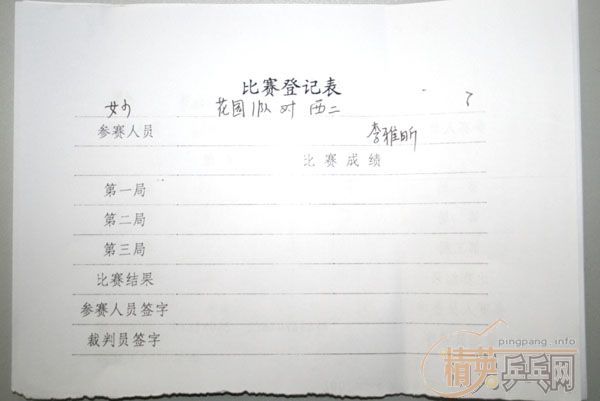 比赛登记表
花园 队 对 西二
参赛人员 李雅昕
比赛成绩
第一局
第二局
第三局
比赛结果
参赛人员签字
裁判员签字
pingpang.info
精英乒乓网